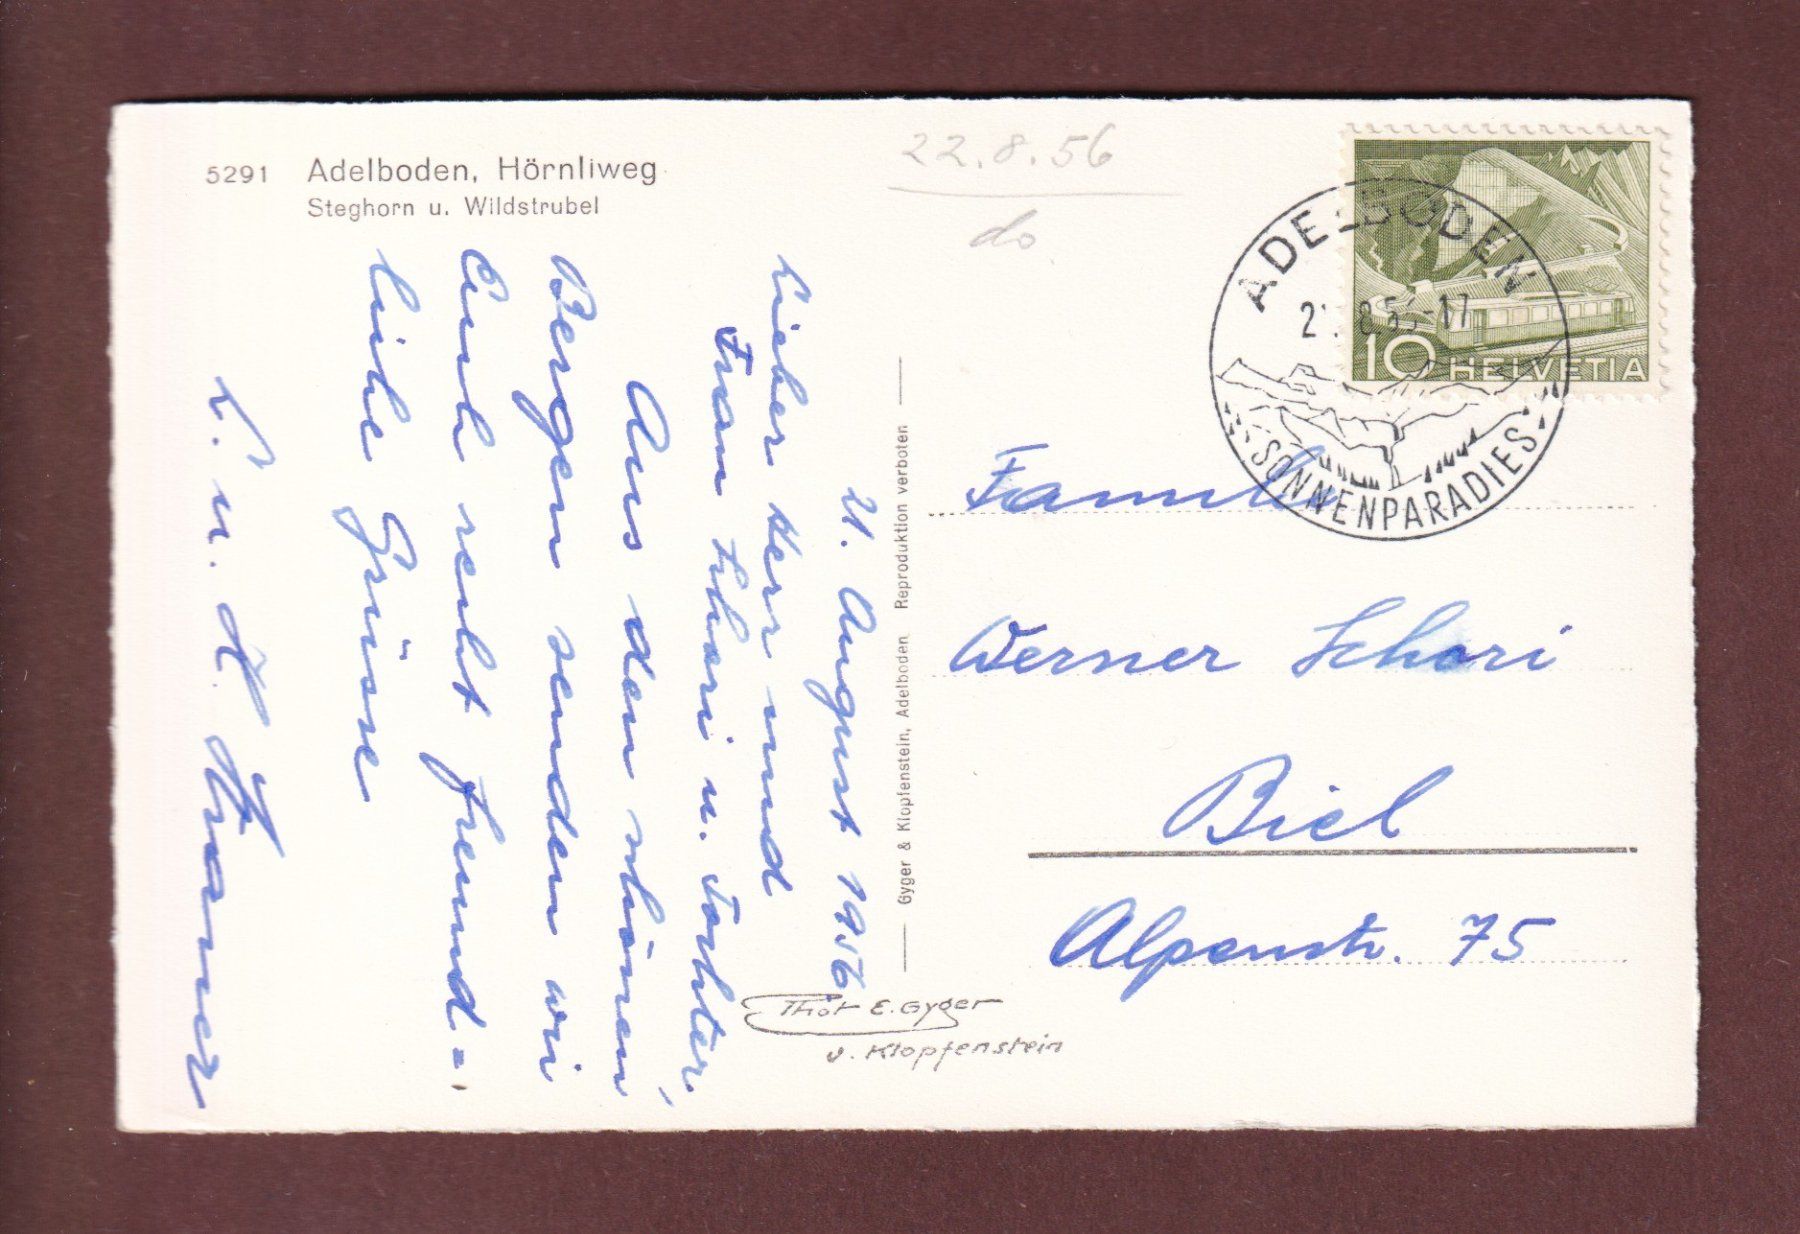 5291 Adelboden, Hörnliweg
Steghorn u. Wildstrubel
22.8.56
do
ADELBODEN
-17
SONNENPARADIES
10 HELVETIA
21. August 1956
Lieber Herr und
Frau Schori u. Tochter,
Aus den schönen
Bergen senden wir
Euch recht freund=
liche Grüsse
L. u. H. Kramer
Gyger & Klopfenstein, Adelboden Reproduktion verboten
Phot E. Gyger
u. Klopfenstein
Familie
Werner Schori
Biel
Alpenstr. 75